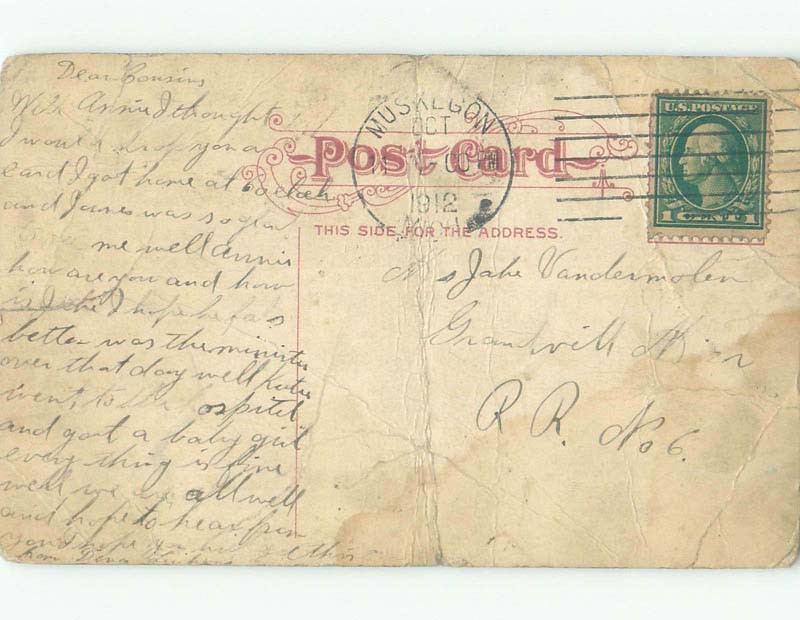 Dear Cousins
Well Annie I thought
I would drop you a
card I got home at 6 oclock
and James was so glad
me well Annie
how are you and how
is Jake I hope he feels
better was the minister
over that day well Katie
went to the ospitel
and got a baby girl
every thing is fine
well we are all well
and hope to hear from
you I hope you
from Dena
MUSKEGON
OCT
1912
MICH
Post Card
THIS SIDE FOR THE ADDRESS.
U.S. POSTAGE
1 CENT 1
Mrs Jake Vandermolen
Grantvill Mich
R R. No 6.